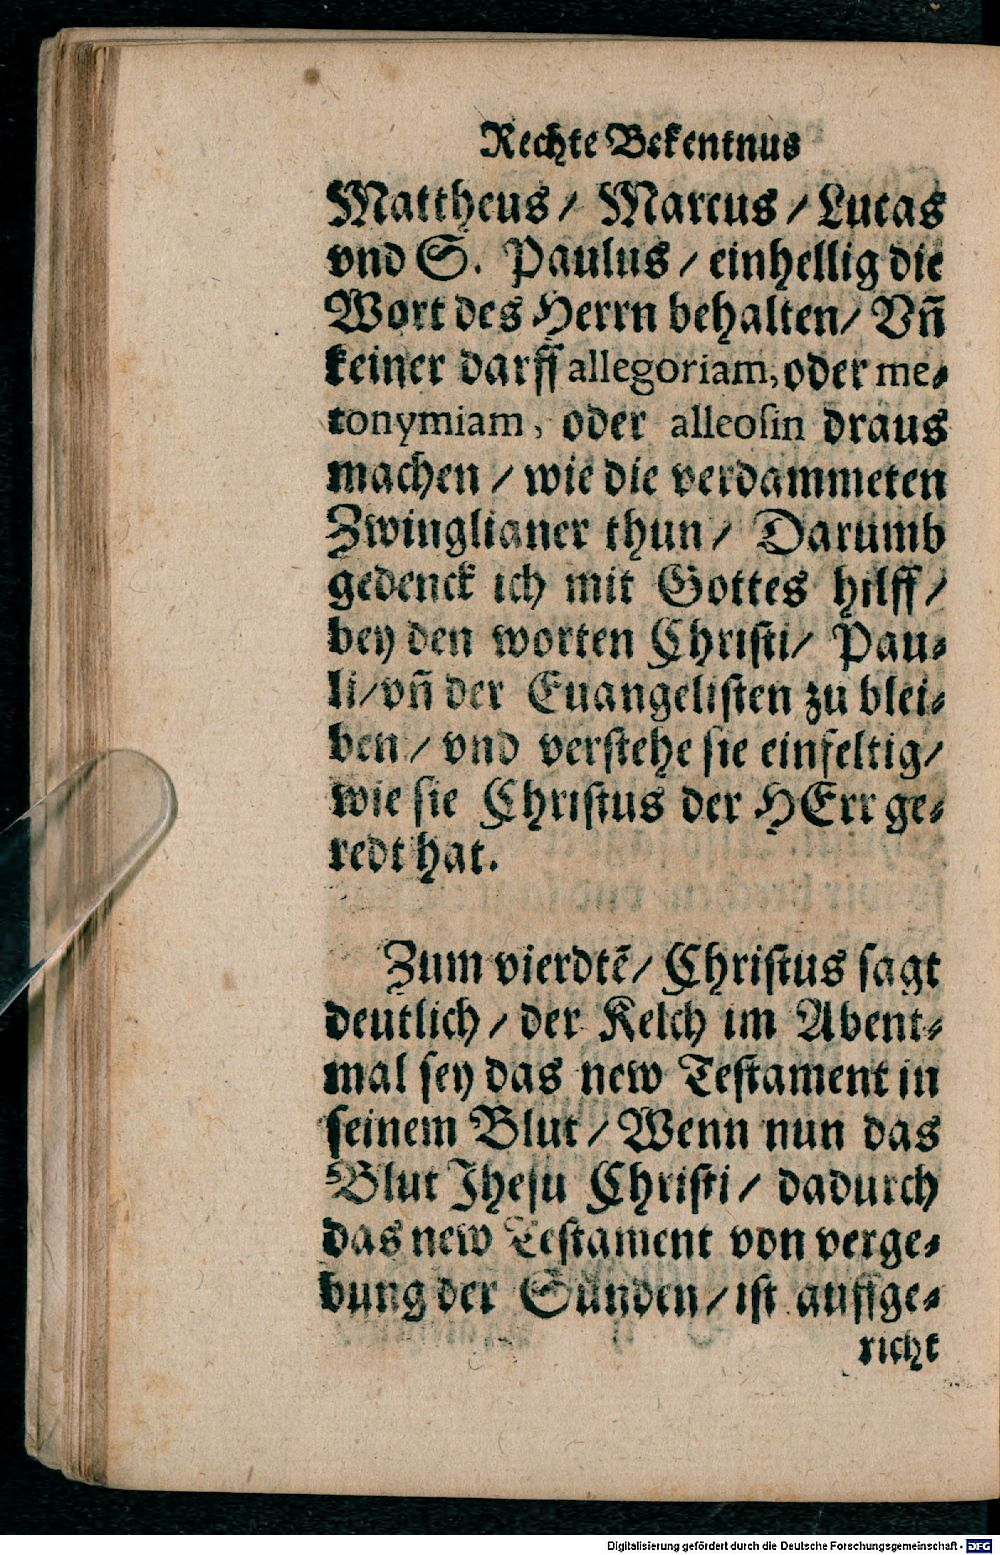 Rechte Bekentnus
Mattheus / Marcus / Lucas
vnd S. Paulus / einhellig die
Wort des Herrn behalten / Vn̄
keiner darff allegoriam, oder me⸗
tonymiam, oder alleoſin draus
machen / wie die verdammeten
Zwinglianer thun / Darumb
gedenck ich mit Gottes hilff /
bey den worten Chriſti / Pau⸗
li / vn̄ der Euangeliſten zu blei⸗
ben / vnd verſtehe ſie einfeltig /
wie ſie Chriſtus der HErr ge⸗
redt hat.
Zum vierdtē / Chriſtus ſagt
deutlich / der Kelch im Abent⸗
mal ſey das new Teſtament in
ſeinem Blut / Wenn nun das
Blut Jheſu Chriſti / dadurch
das new Teſtament von verge⸗
bung der Sünden / iſt auffge⸗
richt
Digitalisierung gefördert durch die Deutsche Forschungsgemeinschaft - DFG